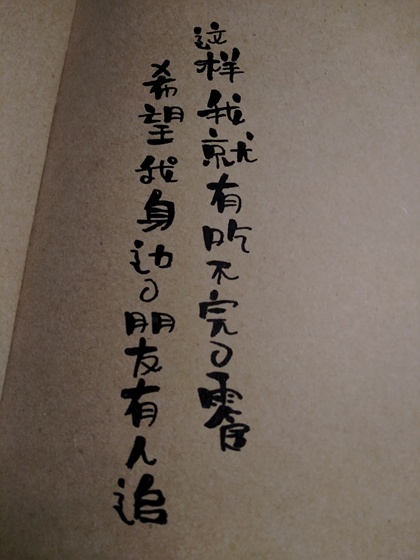 希望我身边の朋友有人追
这样我就有吃不完の零食